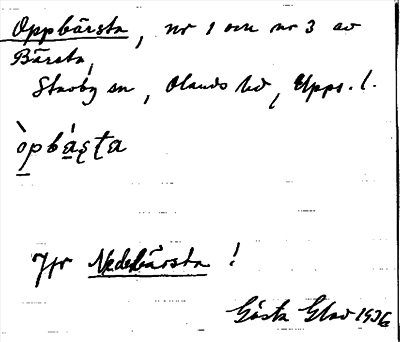 Oppbärsta, nr 1 och nr 3 av
Bärsta,
Stavby sn, Olands hd, Upps. l.
òpbàșta
Jfr Nederbärsta !
Gösta Glad 1936